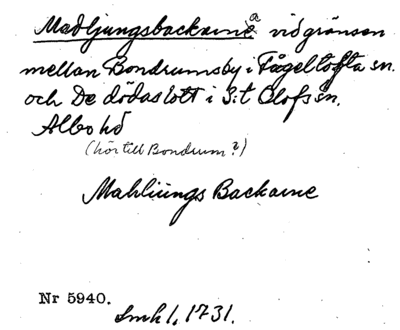 Madljungsbackarne a vid gränsen
mellan Bondrumsby i Fågeltofta sn.
och De dödas tott i S:t Olofs sn.
Albo hd
(hör till Bondrum?)
Mahliüngs Backarne
Nr 5940.
Smh 1, 1731.